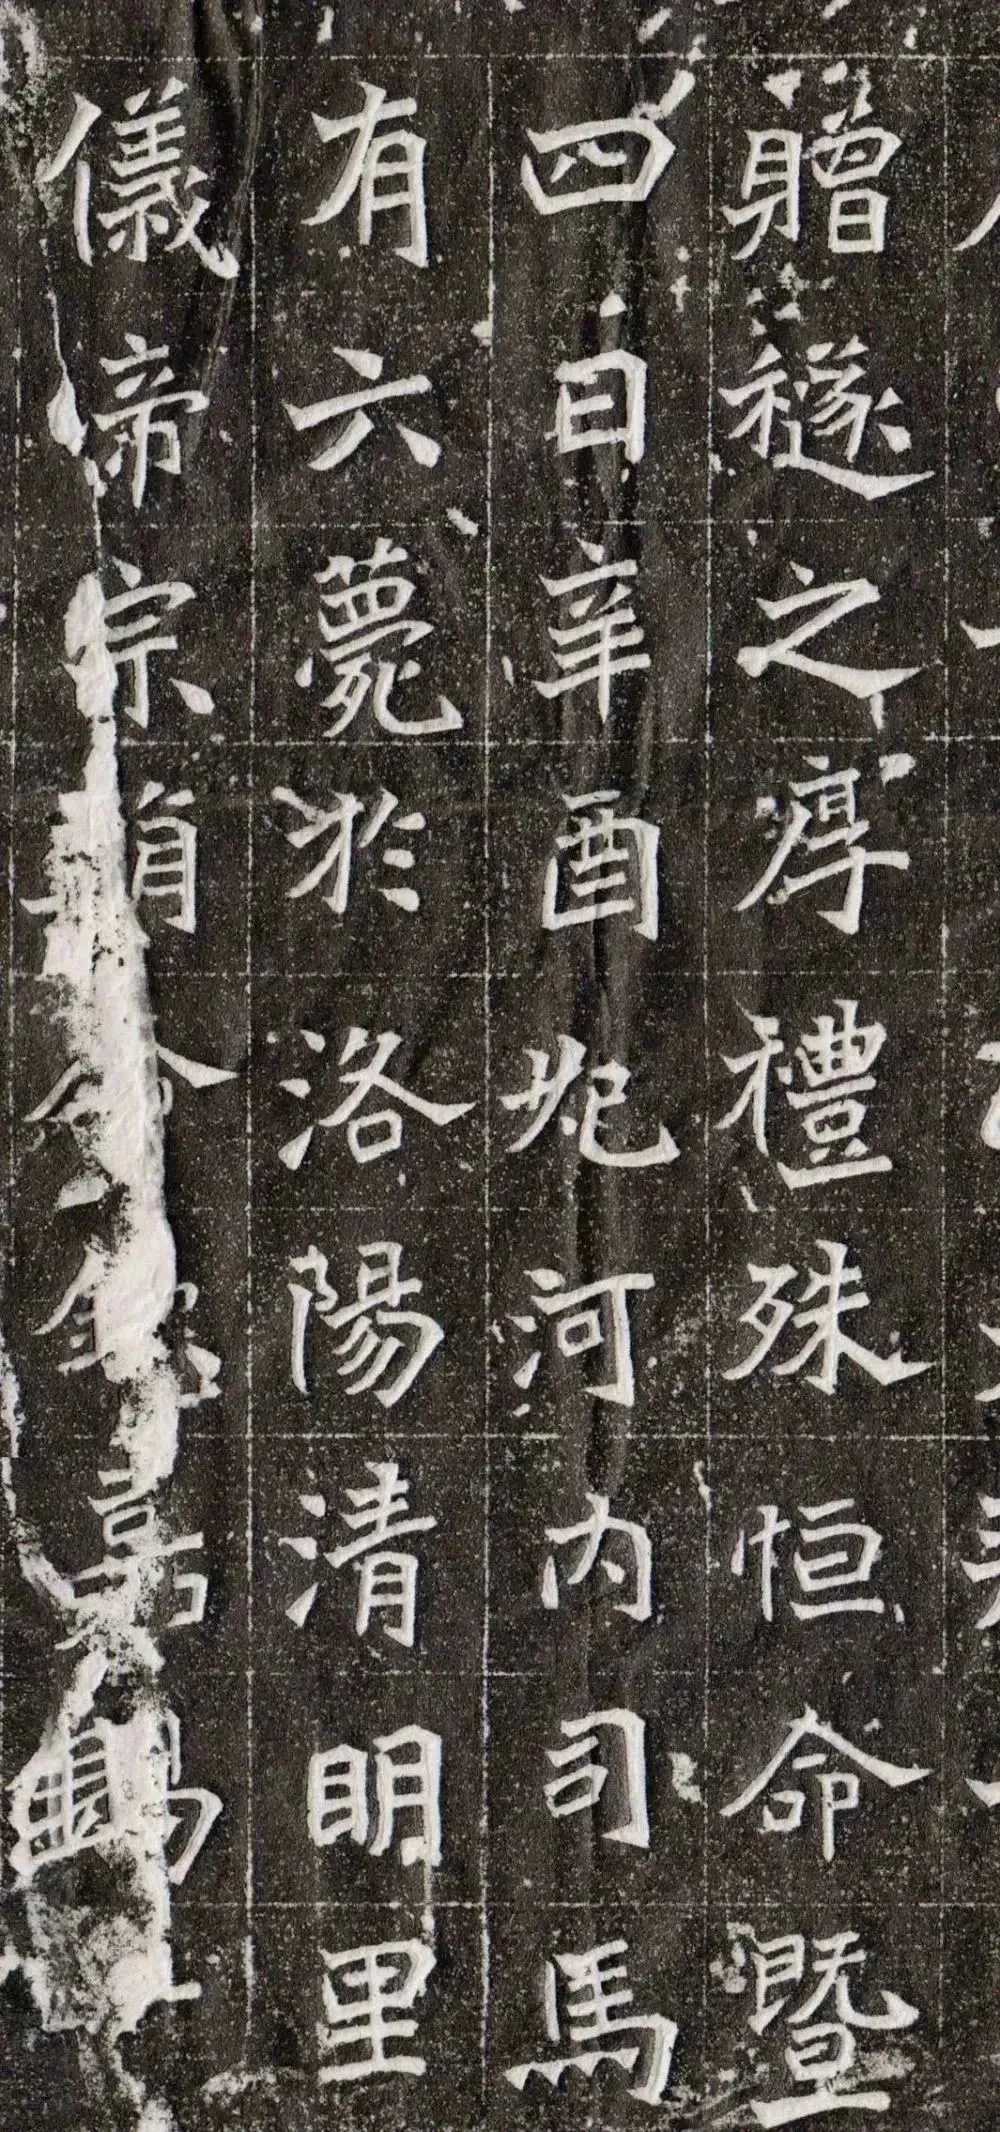 贈襚之厚禮殊恒命暨
四日辛酉妃河内司馬
有六薨於洛陽清明里
儀帝宗有令錫